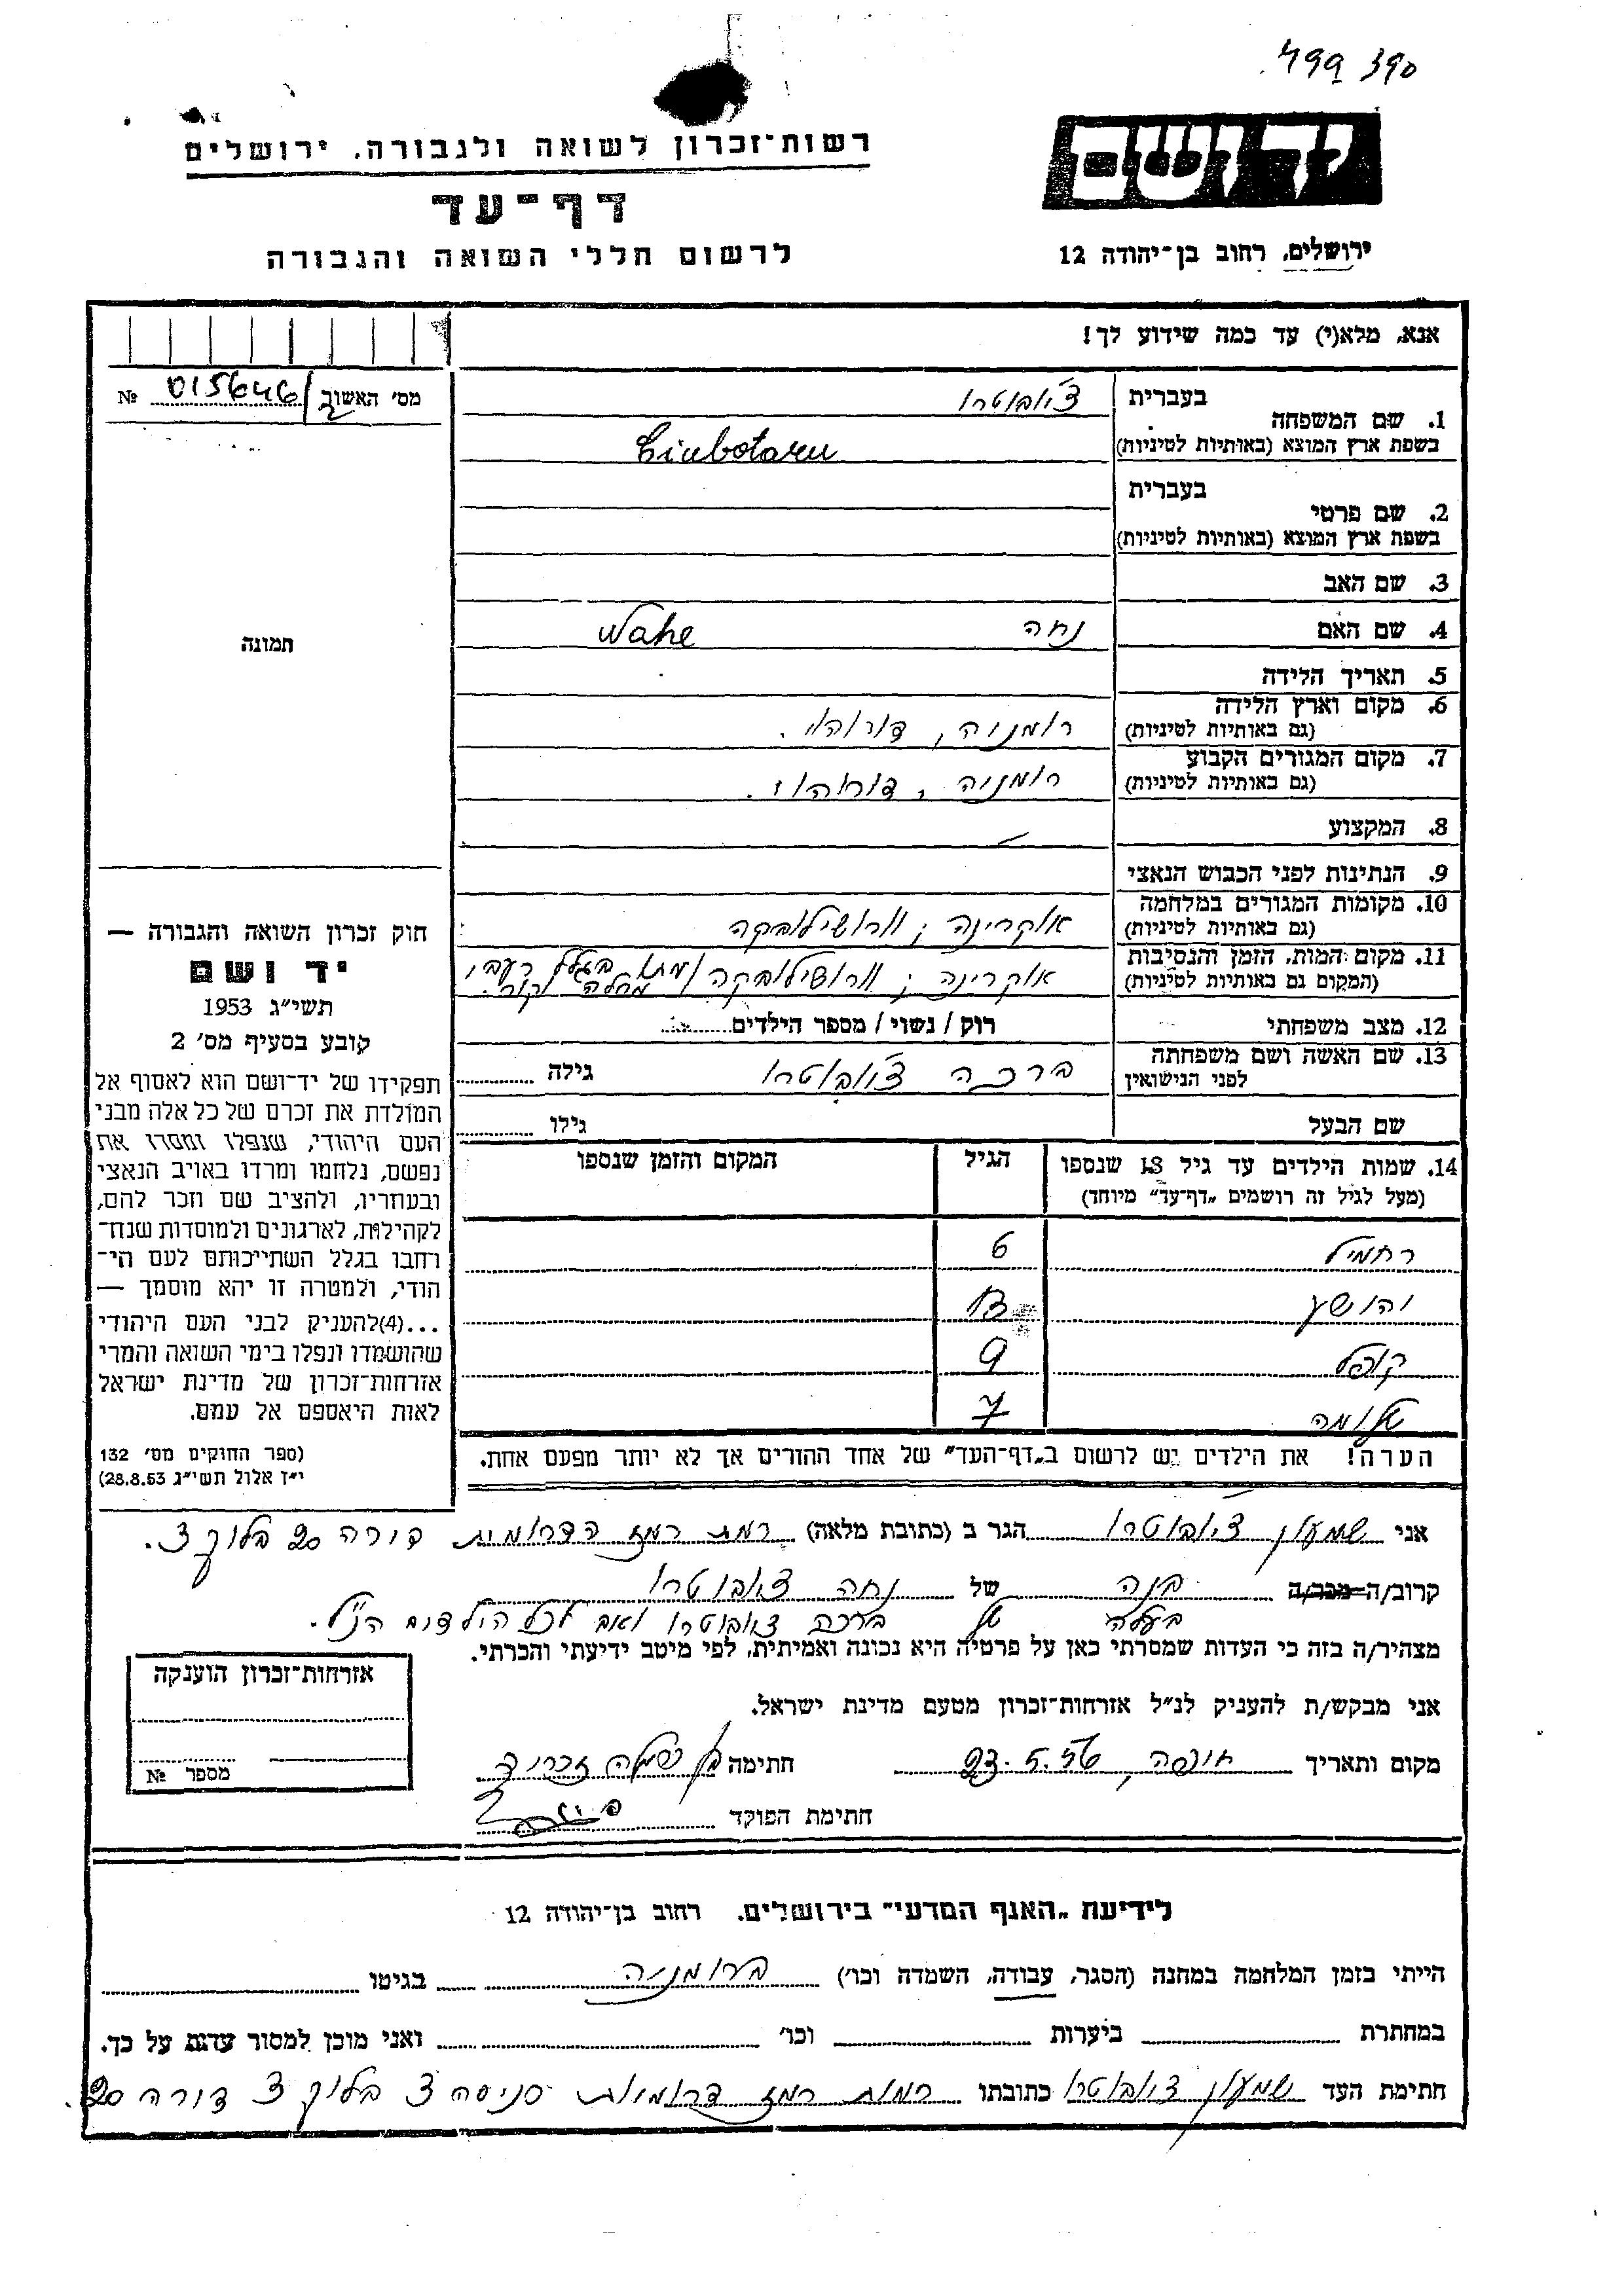 499 390
יד ושם
רשות־זכרון לשואה ולגבורה. ירושלים
דף־עד
ירושלים, רחוב בן־יהודה 12
לרשום חללי השואה והגבורה
אנא, מלא(י) עד כמה שידוע לך!
מס׳ האשור № 015646/
1. שם המשפחה
בעברית צ׳ובוטרו
בשפת ארץ המוצא (באותיות לטיניות) Ciubotaru
2. שם פרטי
בעברית
בשפת ארץ המוצא (באותיות לטיניות)
3. שם האב
4. שם האם נחה Nahe
5. תאריך הלידה
6. מקום וארץ הלידה
(גם באותיות לטיניות) רומניה, דורוהוי.
7. מקום המגורים הקבוע
(גם באותיות לטיניות) רומניה, דורוהוי.
8. המקצוע
9. הנתינות לפני הכבוש הנאצי
10. מקומות המגורים במלחמה
(גם באותיות לטיניות) אוקרינה; וורושילובקה
11. מקום המות, הזמן והנסיבות
(המקום גם באותיות לטיניות) אוקרינה; וורושילובקה / מתו בגלל רעב,
מחלה וקור.
12. מצב משפחתי רוק / נשוי / מספר הילדים
13. שם האשה ושם משפחתה
לפני הנישואין ברכה צ׳ובוטרו גילה
שם הבעל גילו
14. שמות הילדים עד גיל 18 שנספו
(מעל לגיל זה רושמים „דף־עד״ מיוחד)
הגיל
המקום והזמן שנספו
רחמיל 6
יהושע 13
קופל 9
שלומה 7
הערה! את הילדים יש לרשום ב„דף־העד״ של אחד ההורים אך לא יותר מפעם אחת.
תמונה
חוק זכרון השואה והגבורה —
יד ושם
תשי״ג 1953
קובע בסעיף מס׳ 2
תפקידו של יד־ושם הוא לאסוף אל
המולדת את זכרם של כל אלה מבני
העם היהודי, שנפלו ומסרו את
נפשם, נלחמו ומרדו באויב הנאצי
ובעוזריו, ולהציב שם וזכר להם,
לקהילות, לארגונים ולמוסדות שנח־
רחבו בגלל השתייכותם לעם הי־
הודי, ולמטרה זו יהא מוסמך —
...(4)להעניק לבני העם היהודי
שהושמדו ונפלו בימי השואה והמרי
אזרחות־זכרון של מדינת ישראל
לאות היאספם אל עמם.
(ספר החוקים מס׳ 132
י״ז אלול תשי״ג 28.8.53)
אני שמעון צ׳ובוטרו הגר ב (כתובת מלאה) רמת רמז הדרומית דורה 20 בלוק 3.
קרוב/ה מכר/ה בנה של נחה צ׳ובוטרו
בעלה של ברכה צ׳ובוטרו ואב לכל הילדים הנ״ל.
מצהיר/ה בזה כי העדות שמסרתי כאן על פרטיה היא נכונה ואמיתית, לפי מיטב ידיעתי והכרתי.
אני מבקש/ת להעניק לנ״ל אזרחות־זכרון מטעם מדינת ישראל.
מקום ותאריך חיפה, 23.5.56 חתימה
חתימת הפוקד
אזרחות־זכרון הוענקה
מספר №
לידיעת „האגף המדעי״ בירושלים. רחוב בן־יהודה 12
הייתי בזמן המלחמה במחנה (הסגר, עבודה, השמדה וכו׳) ברומניה בגיטו
במחתרת ביערות וכו׳ ואני מוכן למסור עדות על כך.
חתימת העד שמעון צ׳ובוטרו כתובתו רמות רמז דרומיות כניסה 3 בלוק 3 דורה 20.